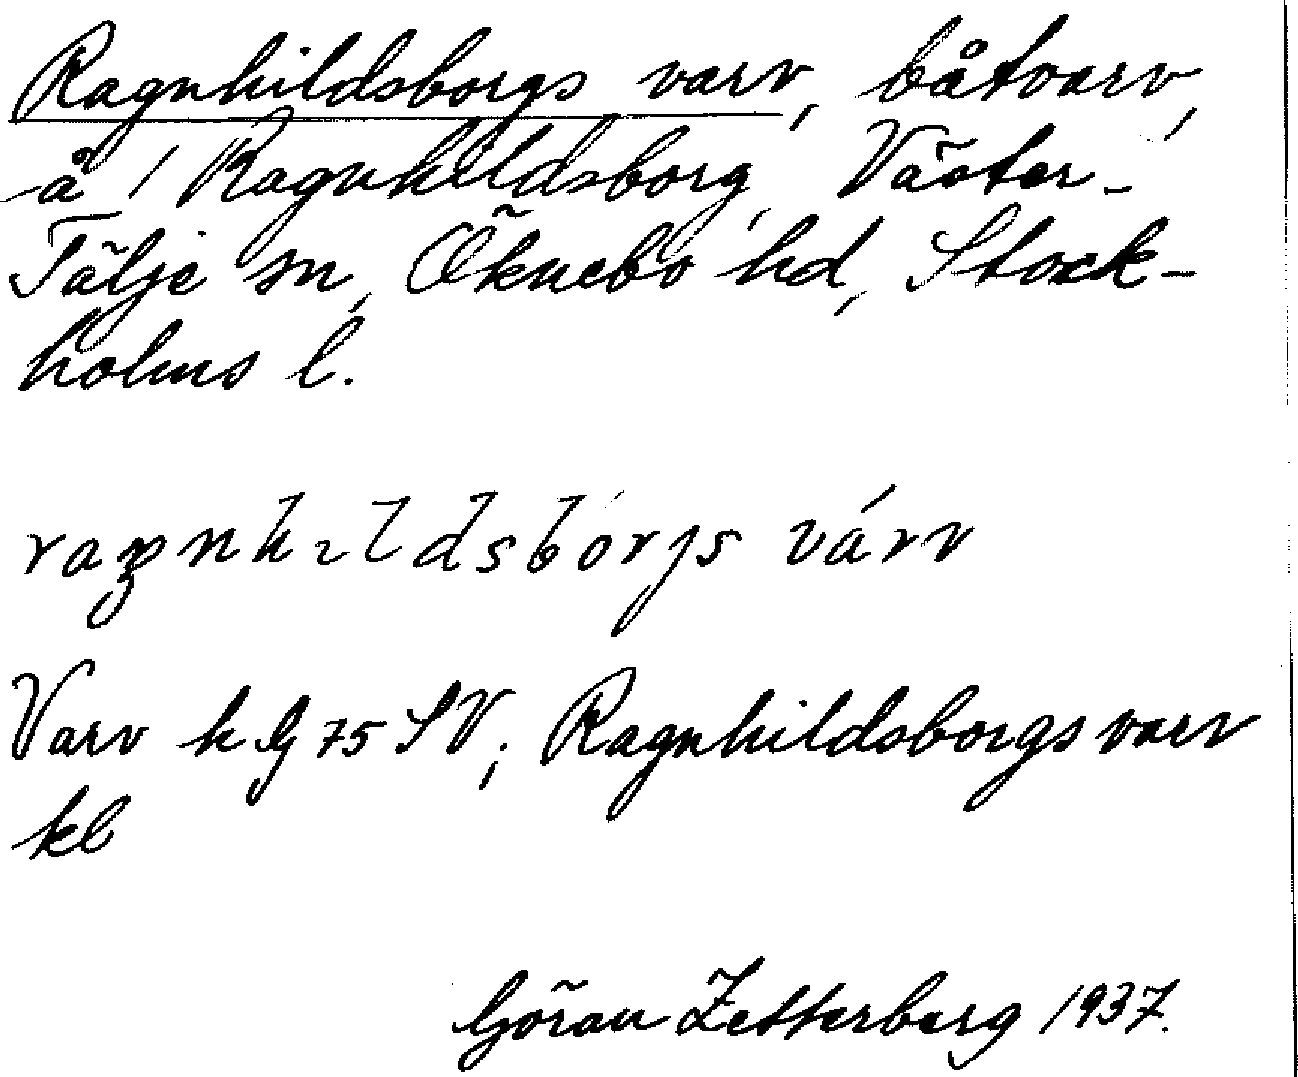 Ragnhildsborgs varv, båtvarv,
å 1 Ragnhildsborg, Väster-
Tälje sn, Öknebo hd, Stock-
holms l.
ragnhildsborjs várv
Varv hG 75 SV; Ragnhildsborgs varv
kl
Göran Zetterberg 1937.